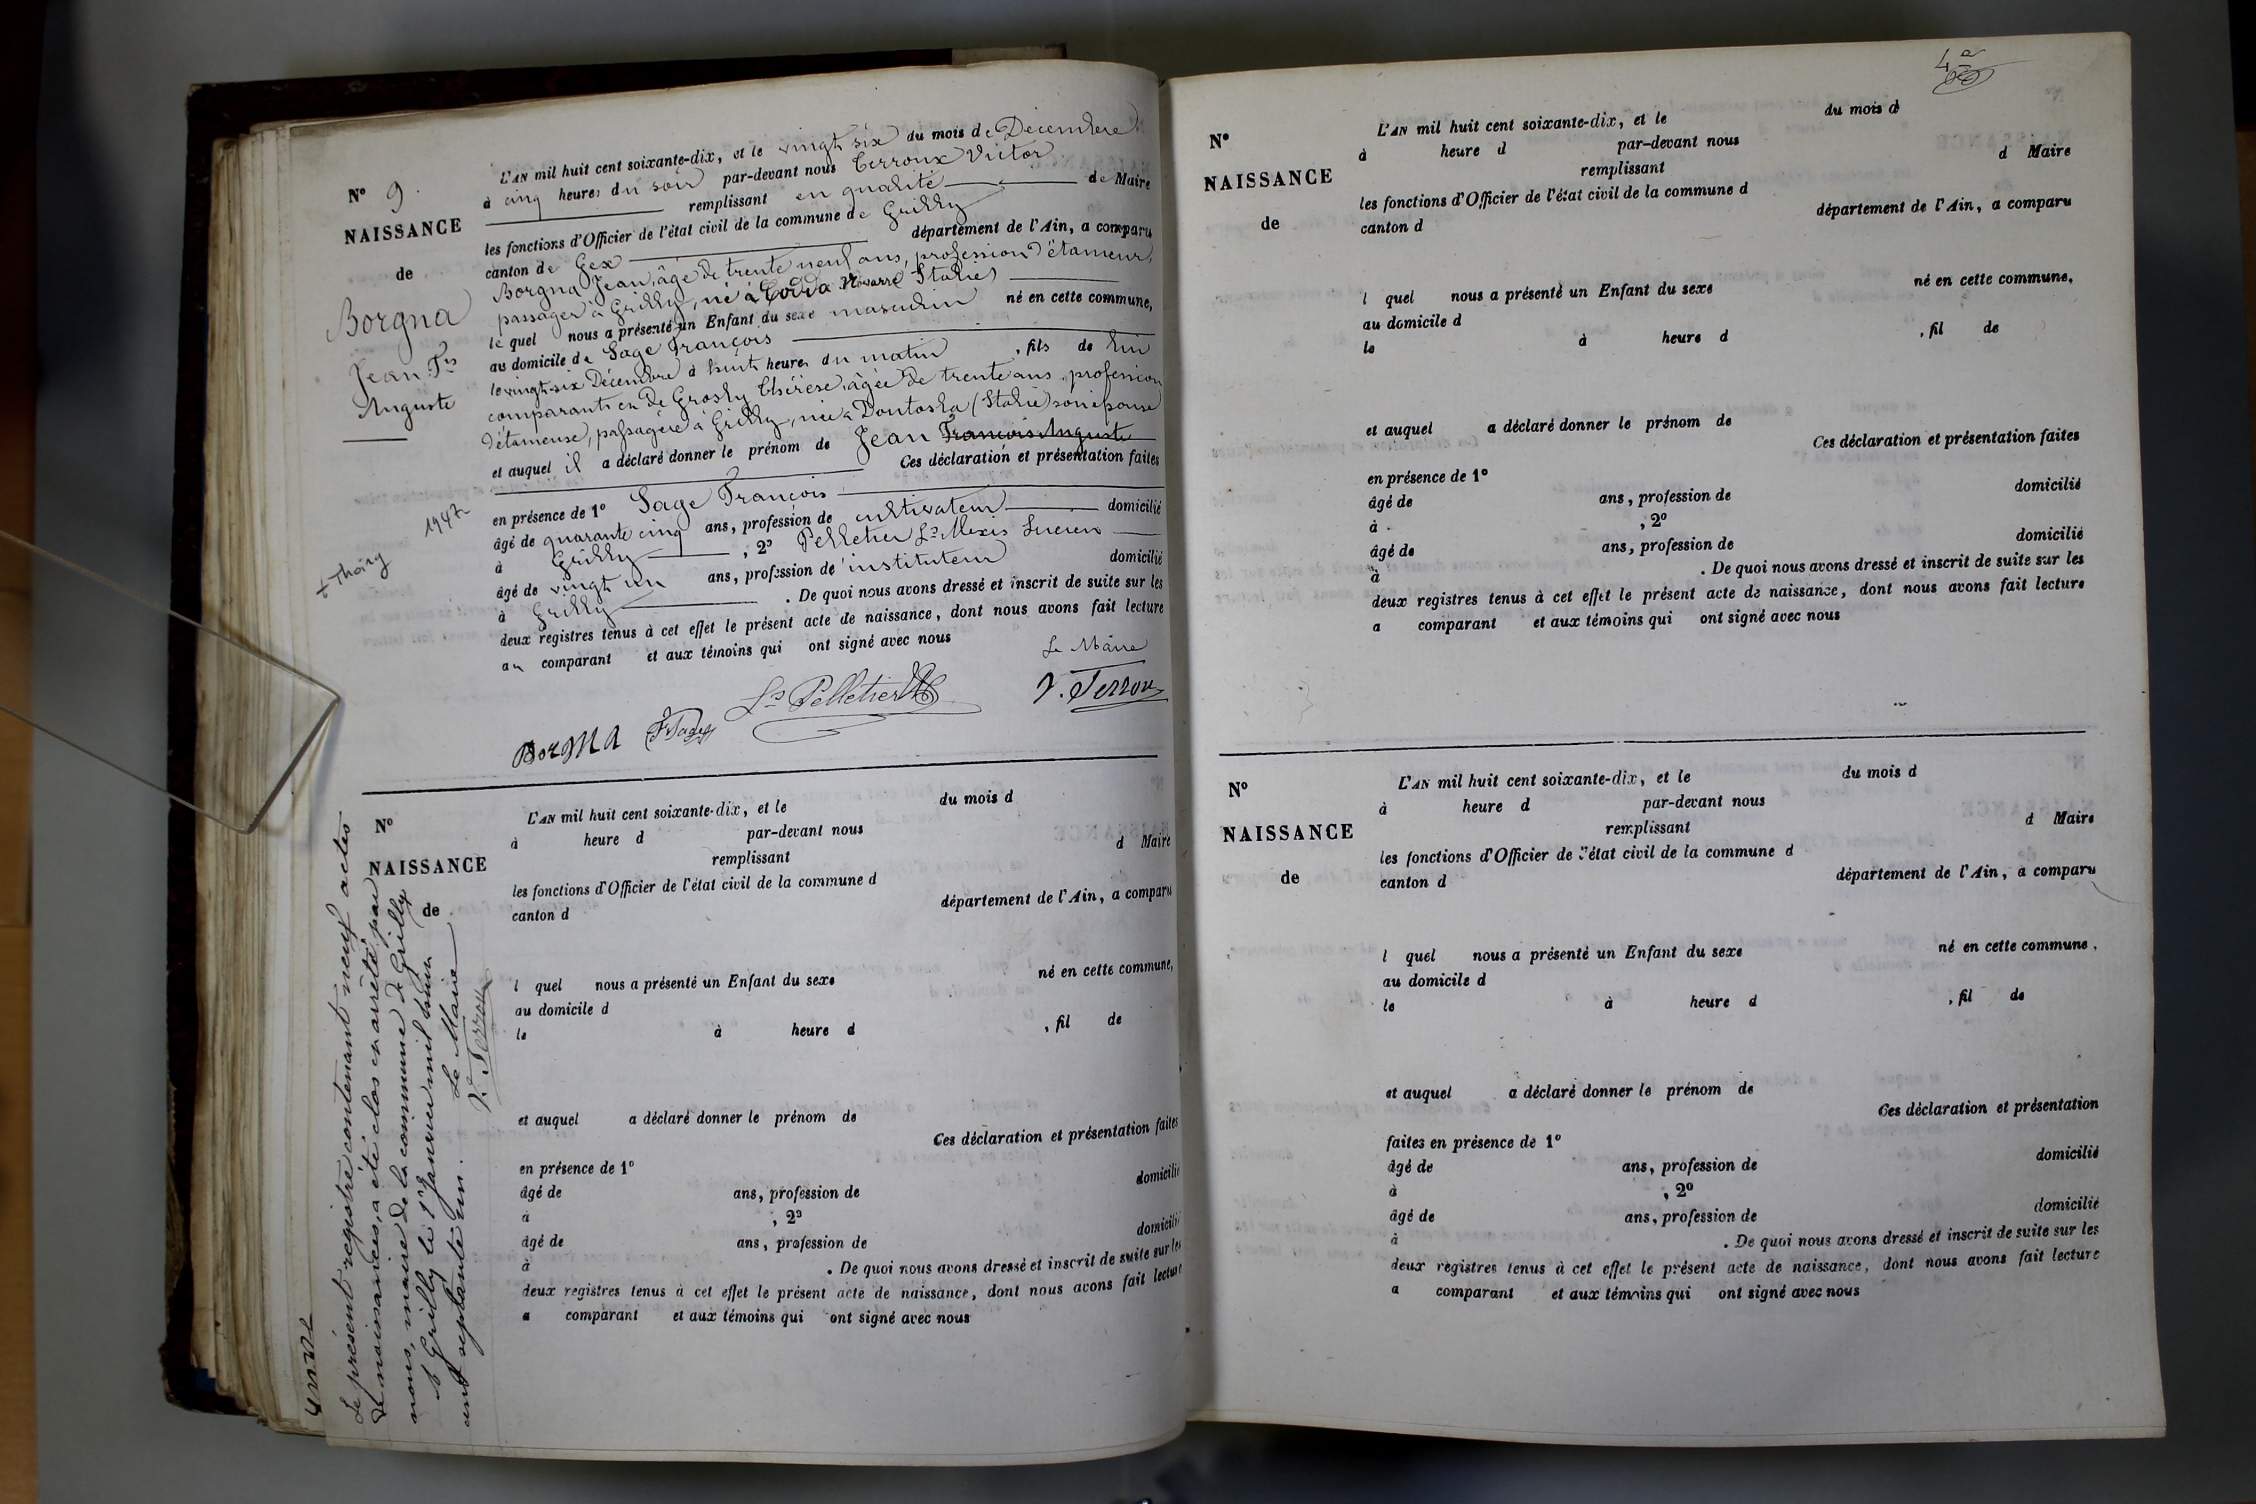 N° 9.
NAISSANCE
de
Borgna
Jean Fois
Auguste
+ Thoiry 1947
L'AN mil huit cent soixante-dix, et le vingt six du mois de Décembre
à cinq heures du soir par-devant nous Terroux Victor
remplissant en qualité de Maire
les fonctions d'Officier de l'état civil de la commune de Grilly
canton de Gex département de l'Ain, a comparu
Borgna Jean, âgé de trente neuf ans, profession d'étameur,
passager à Grilly, né à Novare Italie)
le quel nous a présenté un Enfant du sexe masculin né en cette commune,
au domicile de Sage François
le vingt-six Décembre à huit heures du matin , fils de lui
comparant et de Grosly Thérèse, âgée de trente ans, profession
d'étameuse, passagère à Grilly, née à (Italie) son épouse
et auquel il a déclaré donner le prénom de Jean François Auguste
Ces déclaration et présentation faites
en présence de 1° Sage François
âgé de quarante cinq ans, profession de cultivateur domicilié
à Grilly , 2° Pelletier Ls Alexis Lucien
âgé de vingt un ans, profession de instituteur domicilié
à Grilly . De quoi nous avons dressé et inscrit de suite sur les
deux registres tenus à cet effet le présent acte de naissance, dont nous avons fait lecture
au comparant et aux témoins qui ont signé avec nous
Le Maire
Borgna F Sage Ls Pelletier V. Terroux
N°
NAISSANCE
de
L'AN mil huit cent soixante-dix, et le du mois d
à heure d par-devant nous
remplissant d Maire
les fonctions d'Officier de l'état civil de la commune d
canton d département de l'Ain, a comparu
l quel nous a présenté un Enfant du sexe né en cette commune,
au domicile d
le à heure d , fil de
et auquel a déclaré donner le prénom de
Ces déclaration et présentation faites
en présence de 1°
âgé de ans, profession de domicilié
à , 2°
âgé de ans, profession de domicilié
à . De quoi nous avons dressé et inscrit de suite sur les
deux registres tenus à cet effet le présent acte de naissance, dont nous avons fait lecture
a comparant et aux témoins qui ont signé avec nous
Le présent registre contenant neuf actes
de naissances, a été clos et arrêté par
nous, maire de la commune de Grilly
à Grilly le 1er Janvier mil huit
cent septante un. Le Maire
V. Terroux
4
N°
NAISSANCE
de
L'AN mil huit cent soixante-dix, et le du mois d
à heure d par-devant nous
remplissant d Maire
les fonctions d'Officier de l'état civil de la commune d
canton d département de l'Ain, a comparu
l quel nous a présenté un Enfant du sexe né en cette commune,
au domicile d
le à heure d , fil de
et auquel a déclaré donner le prénom de
Ces déclaration et présentation faites
en présence de 1°
âgé de ans, profession de domicilié
à , 2°
âgé de ans, profession de domicilié
à . De quoi nous avons dressé et inscrit de suite sur les
deux registres tenus à cet effet le présent acte de naissance, dont nous avons fait lecture
a comparant et aux témoins qui ont signé avec nous
N°
NAISSANCE
de
L'AN mil huit cent soixante-dix, et le du mois d
à heure d par-devant nous
remplissant d Maire
les fonctions d'Officier de l'état civil de la commune d
canton d département de l'Ain, a comparu
l quel nous a présenté un Enfant du sexe né en cette commune,
au domicile d
le à heure d , fil de
et auquel a déclaré donner le prénom de
Ces déclaration et présentation
faites en présence de 1°
âgé de ans, profession de domicilié
à , 2°
âgé de ans, profession de domicilié
à . De quoi nous avons dressé et inscrit de suite sur les
deux registres tenus à cet effet le présent acte de naissance, dont nous avons fait lecture
a comparant et aux témoins qui ont signé avec nous